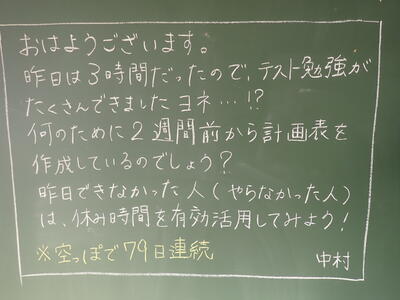 おはようございます。
昨日は3時間だったので、テスト勉強が
たくさんできましたヨネ…!?
何のために2週間前から計画表を
作成しているのでしょう?
昨日できなかった人(やらなかった人)
は、休み時間を有効活用してみよう!
※空っぽで79日連続
中村